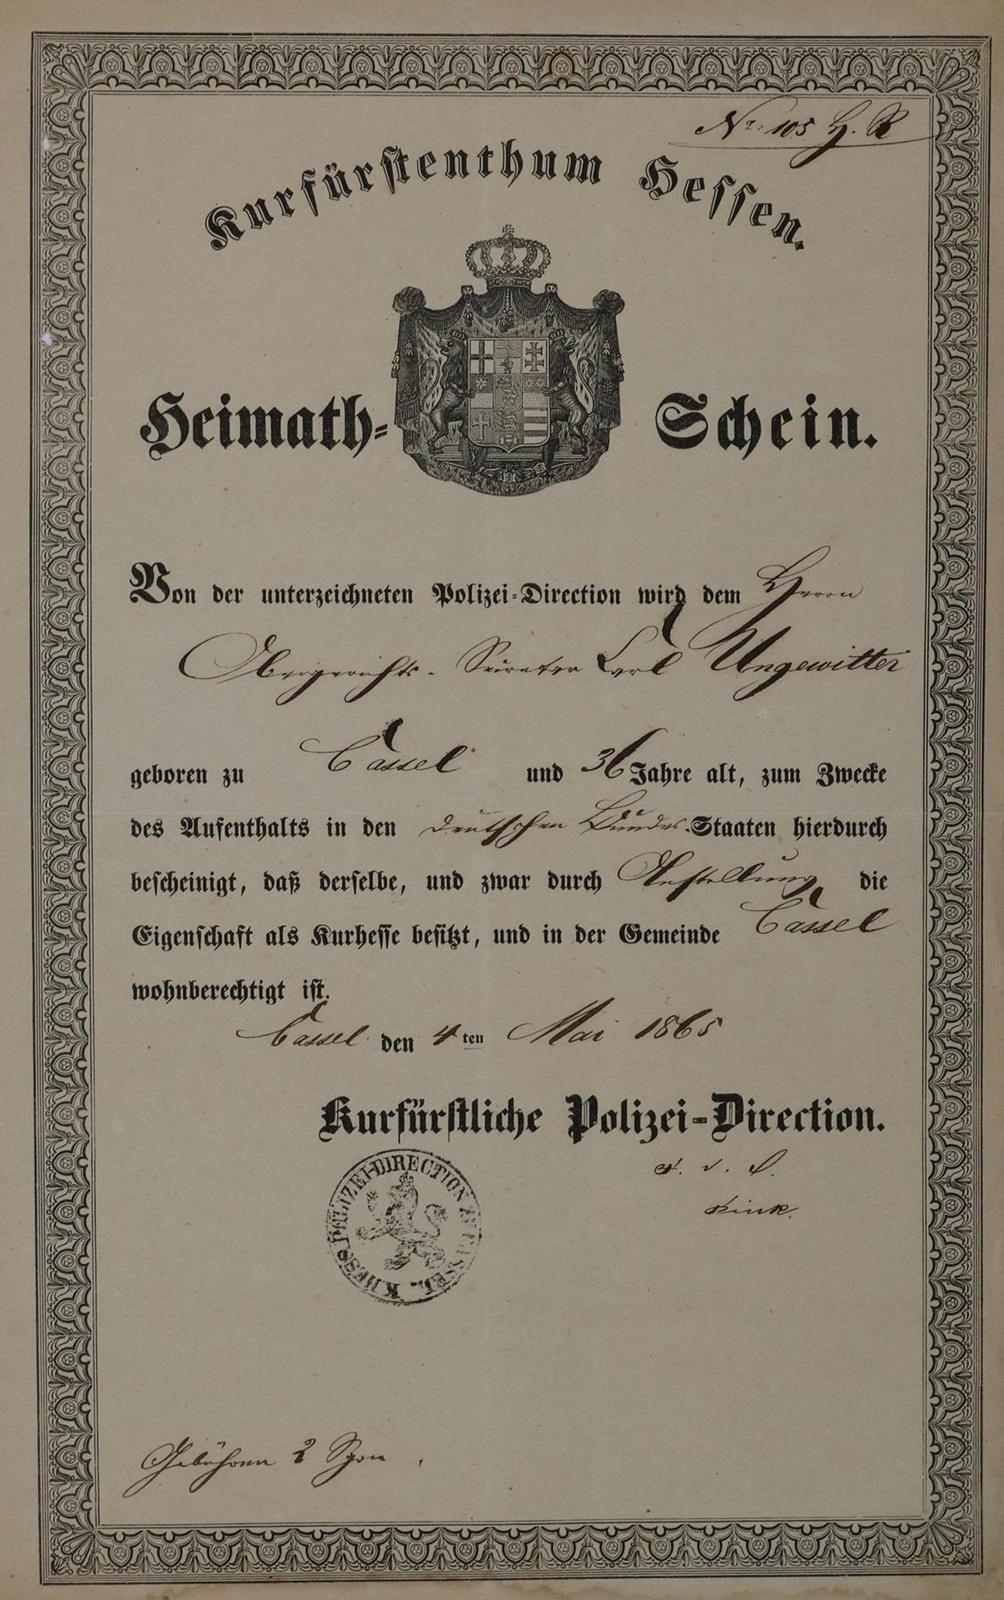 Nr: 105 H. R
Kurfürstenthum Hessen.
Heimath-Schein.
Von der unterzeichneten Polizei-Direction wird dem Herrn
Obergerichts-Secretar Carl Ungewitter
geboren zu Cassel und 36 Jahre alt, zum Zwecke
des Aufenthalts in den deutschen Bundes-Staaten hierdurch
bescheinigt, daß derselbe, und zwar durch Anstellung, die
Eigenschaft als Kurhesse besitzt, und in der Gemeinde Cassel
wohnberechtigt ist.
Cassel den 4ten Mai 1865
Kurfürstliche Polizei-Direction.
POLIZEI-DIRECTION CASSEL KHESS.
Gebühren 2 Sgrn